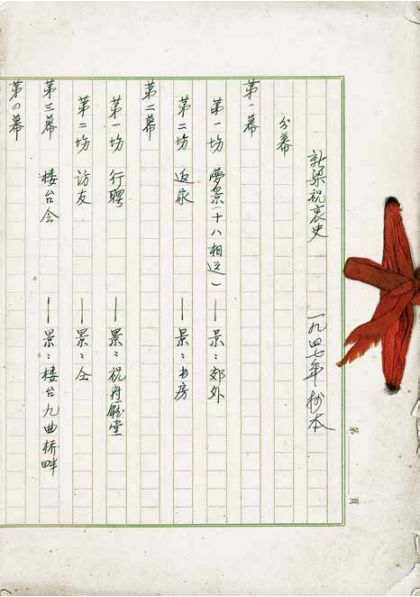 新梁祝哀史 一九四七年抄本
分幕
第一幕
第一場 夢景(十八相送) —— 景:郊外
第二場 返家 —— 景:书房
第二幕
第一場 行聘 —— 景:祝府廳堂
第二場 访友 —— 景:仝
第三幕 楼台会 —— 景:楼台九曲桥畔
第四幕
第 頁